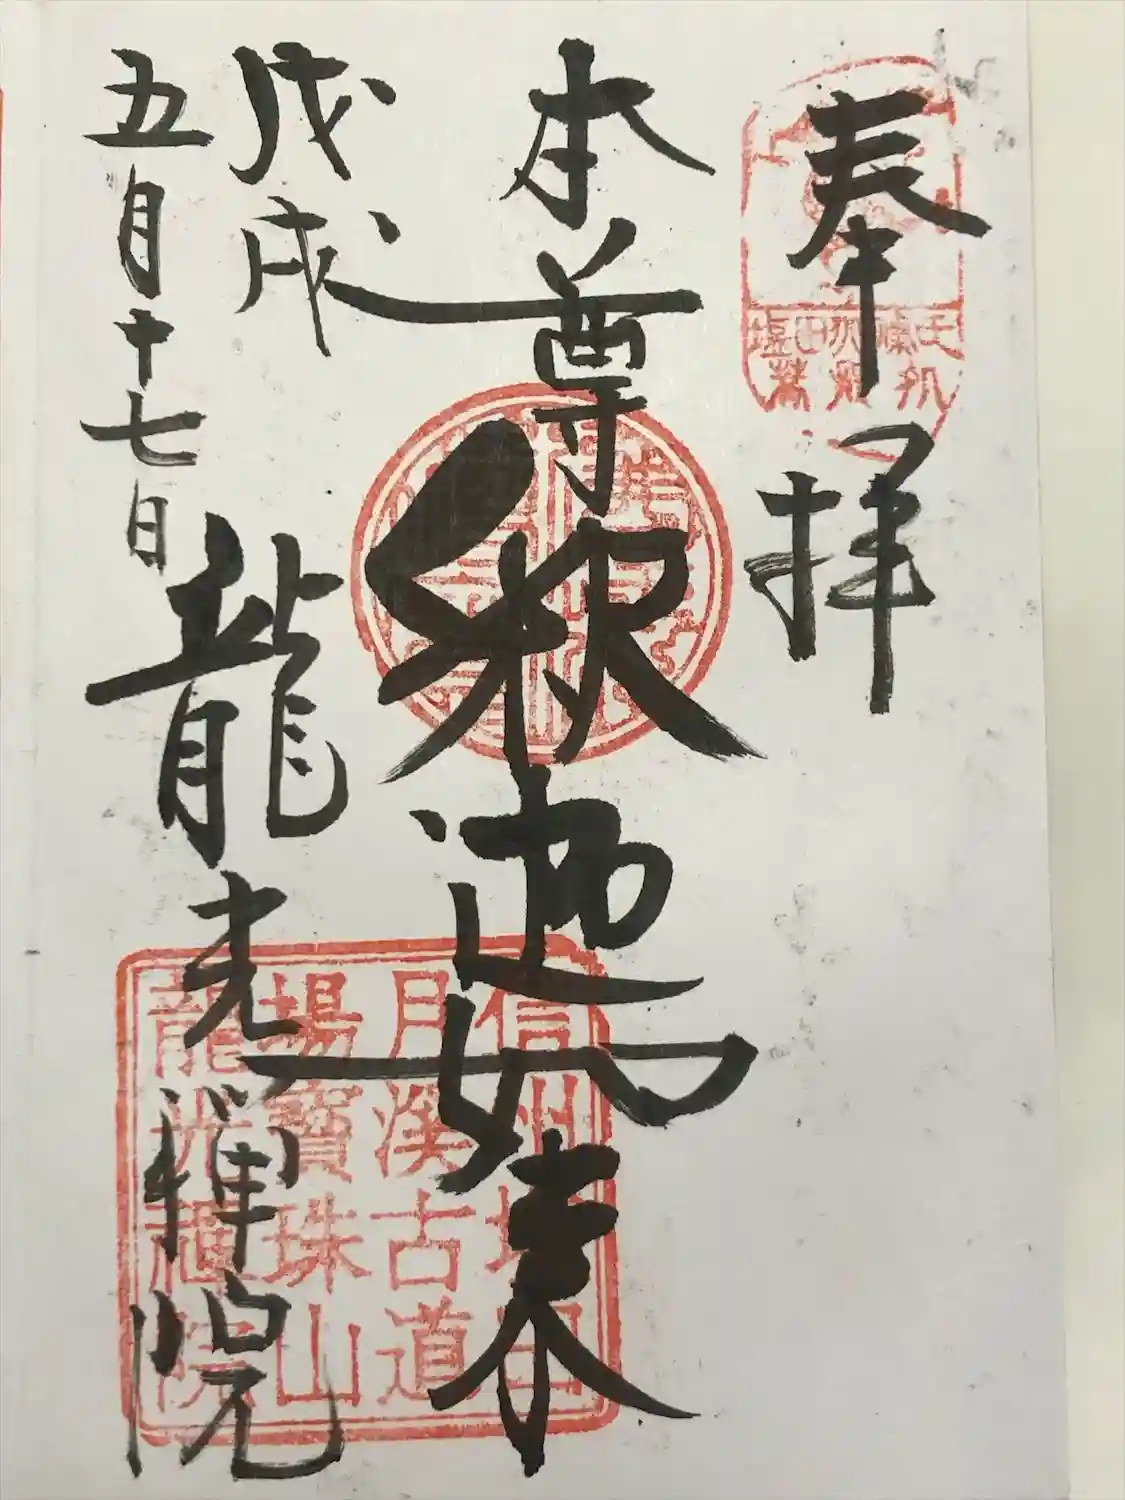 奉拝
本尊
釈迦如来
戊戌
五月十七日
龍光禅院
信州塩田
月溪古道
場寳珠山
龍光禅院